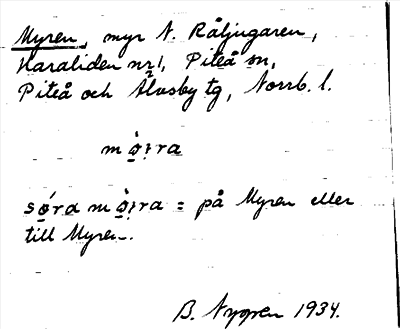 Myren, myr N. Råljugaren,
Haraliden nr 1, Piteå sn,
Piteå och Älvsby tg, Norrb. l.
= på Myren eller
till Myren.
B. Nygren 1934.